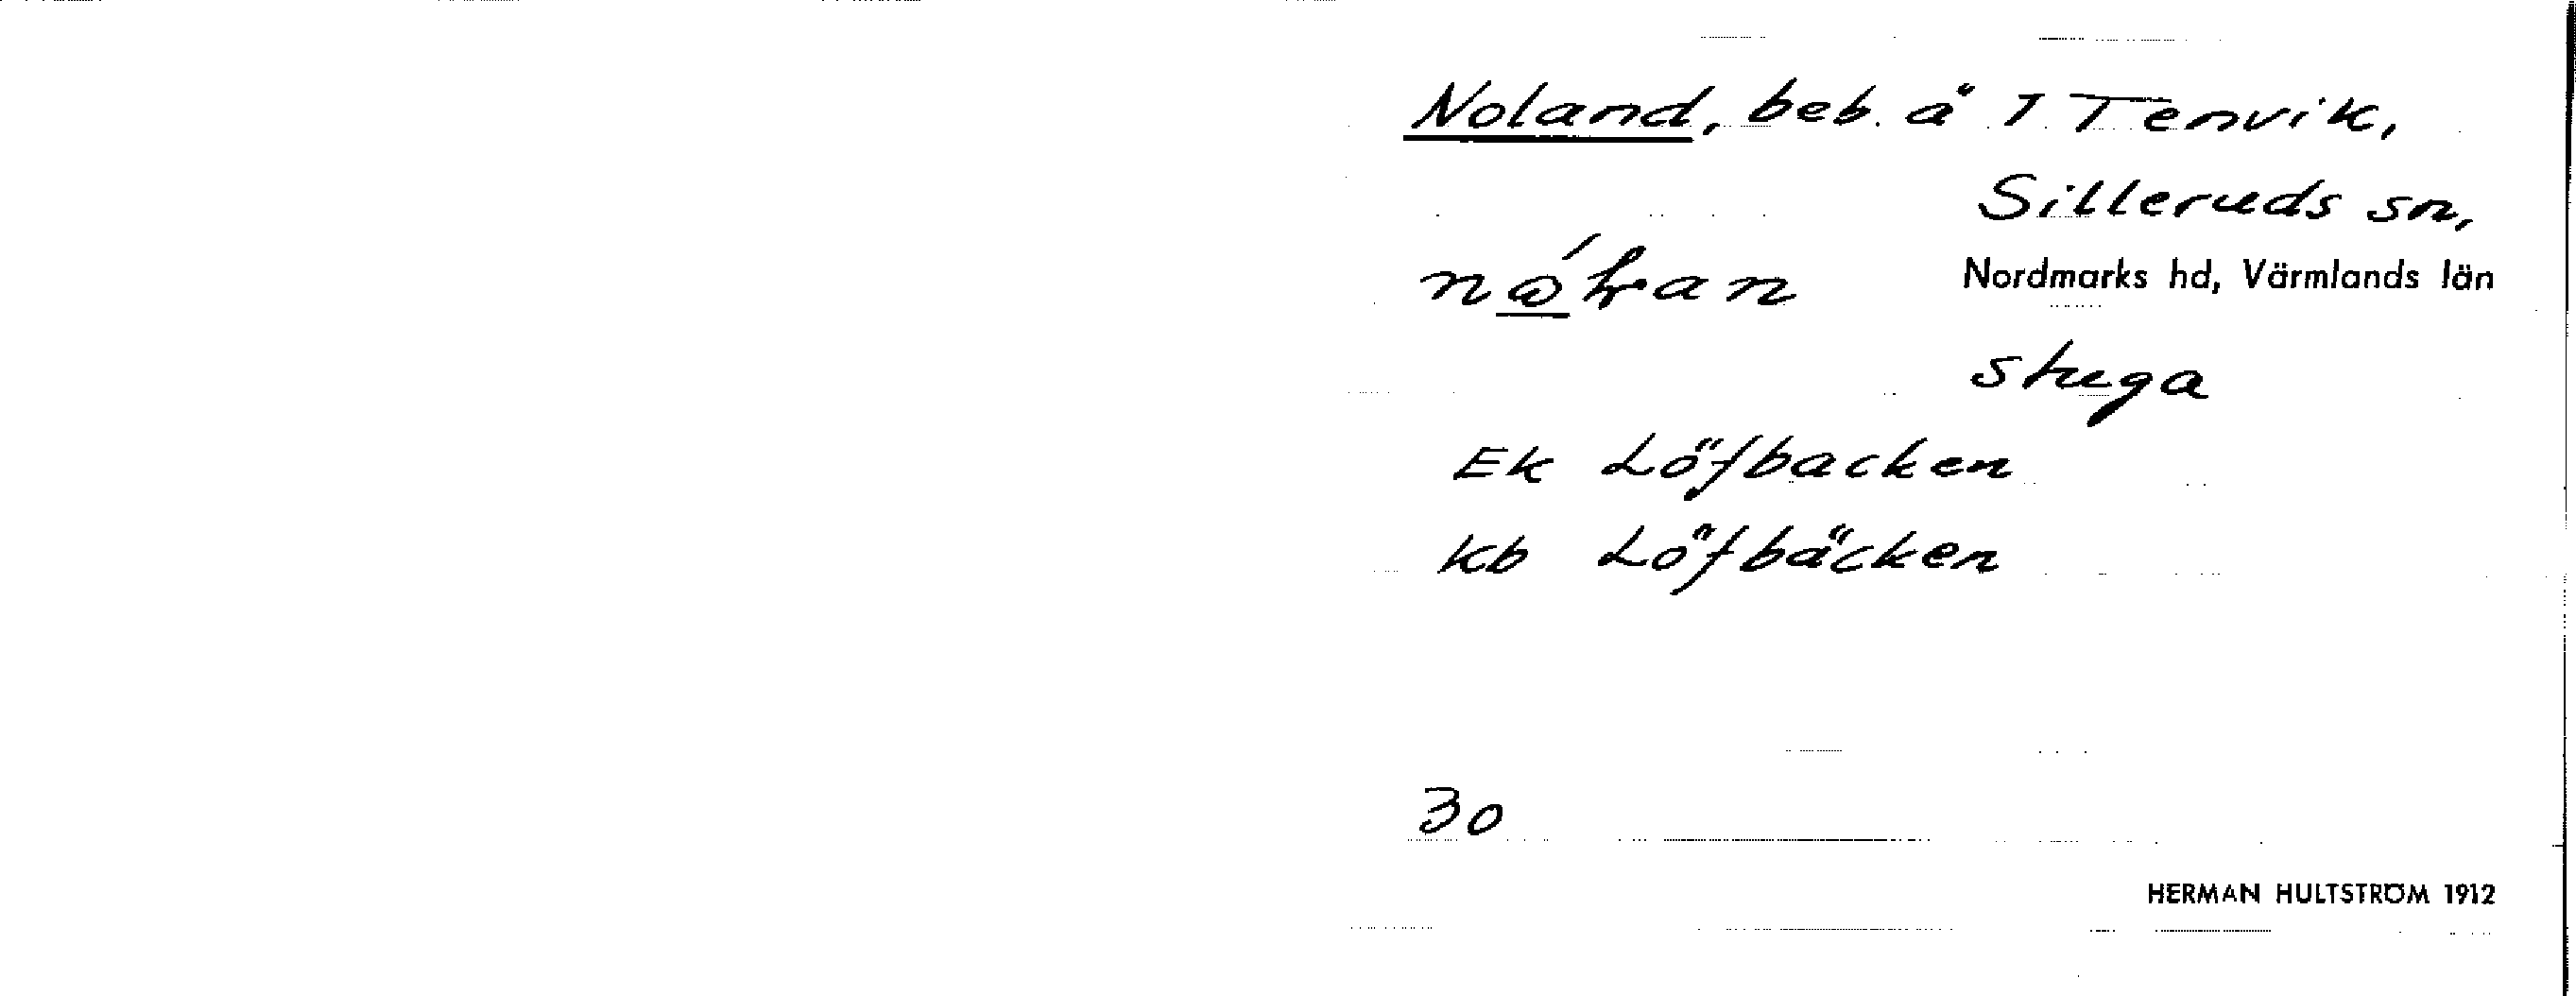 Noland, beb. å 1 Tenvik,
Silleruds sn,
Nordmarks hd, Värmlands län
stuga
Ek Löfbacken
Kb Löfbäcken
30
HERMAN HULTSTRÖM 1912